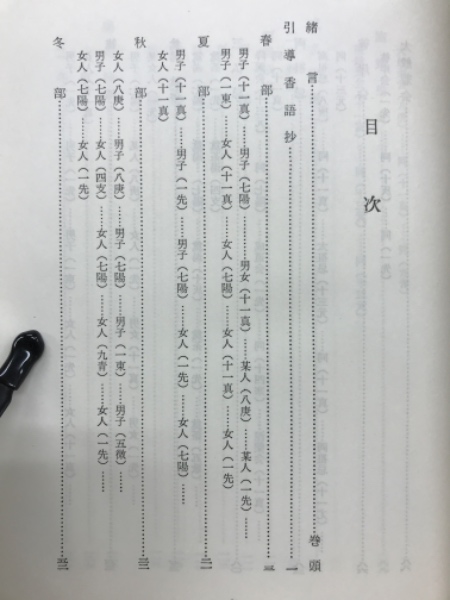 目次
緒言……巻頭
引導香語抄……一
春部……
男子（十一真）……男子（七陽）……男女（十一真）……某人（八庚）……某人（一先）
男子（一東）……女人（十一真）……女人（七陽）……女人（十一真）……女人（一先）
夏部……
男子（十一真）……男子（一先）……男子（七陽）……女人（一先）……女人（七陽）……
女人（十一真）
秋部……
女人（八庚）……男子（八庚）……男子（七陽）……男子（一東）……男子（五微）……
男子（七陽）……女人（四支）……女人（七陽）……女人（九青）……女人（一先）……
女人（七陽）……女人（一先）
冬部……